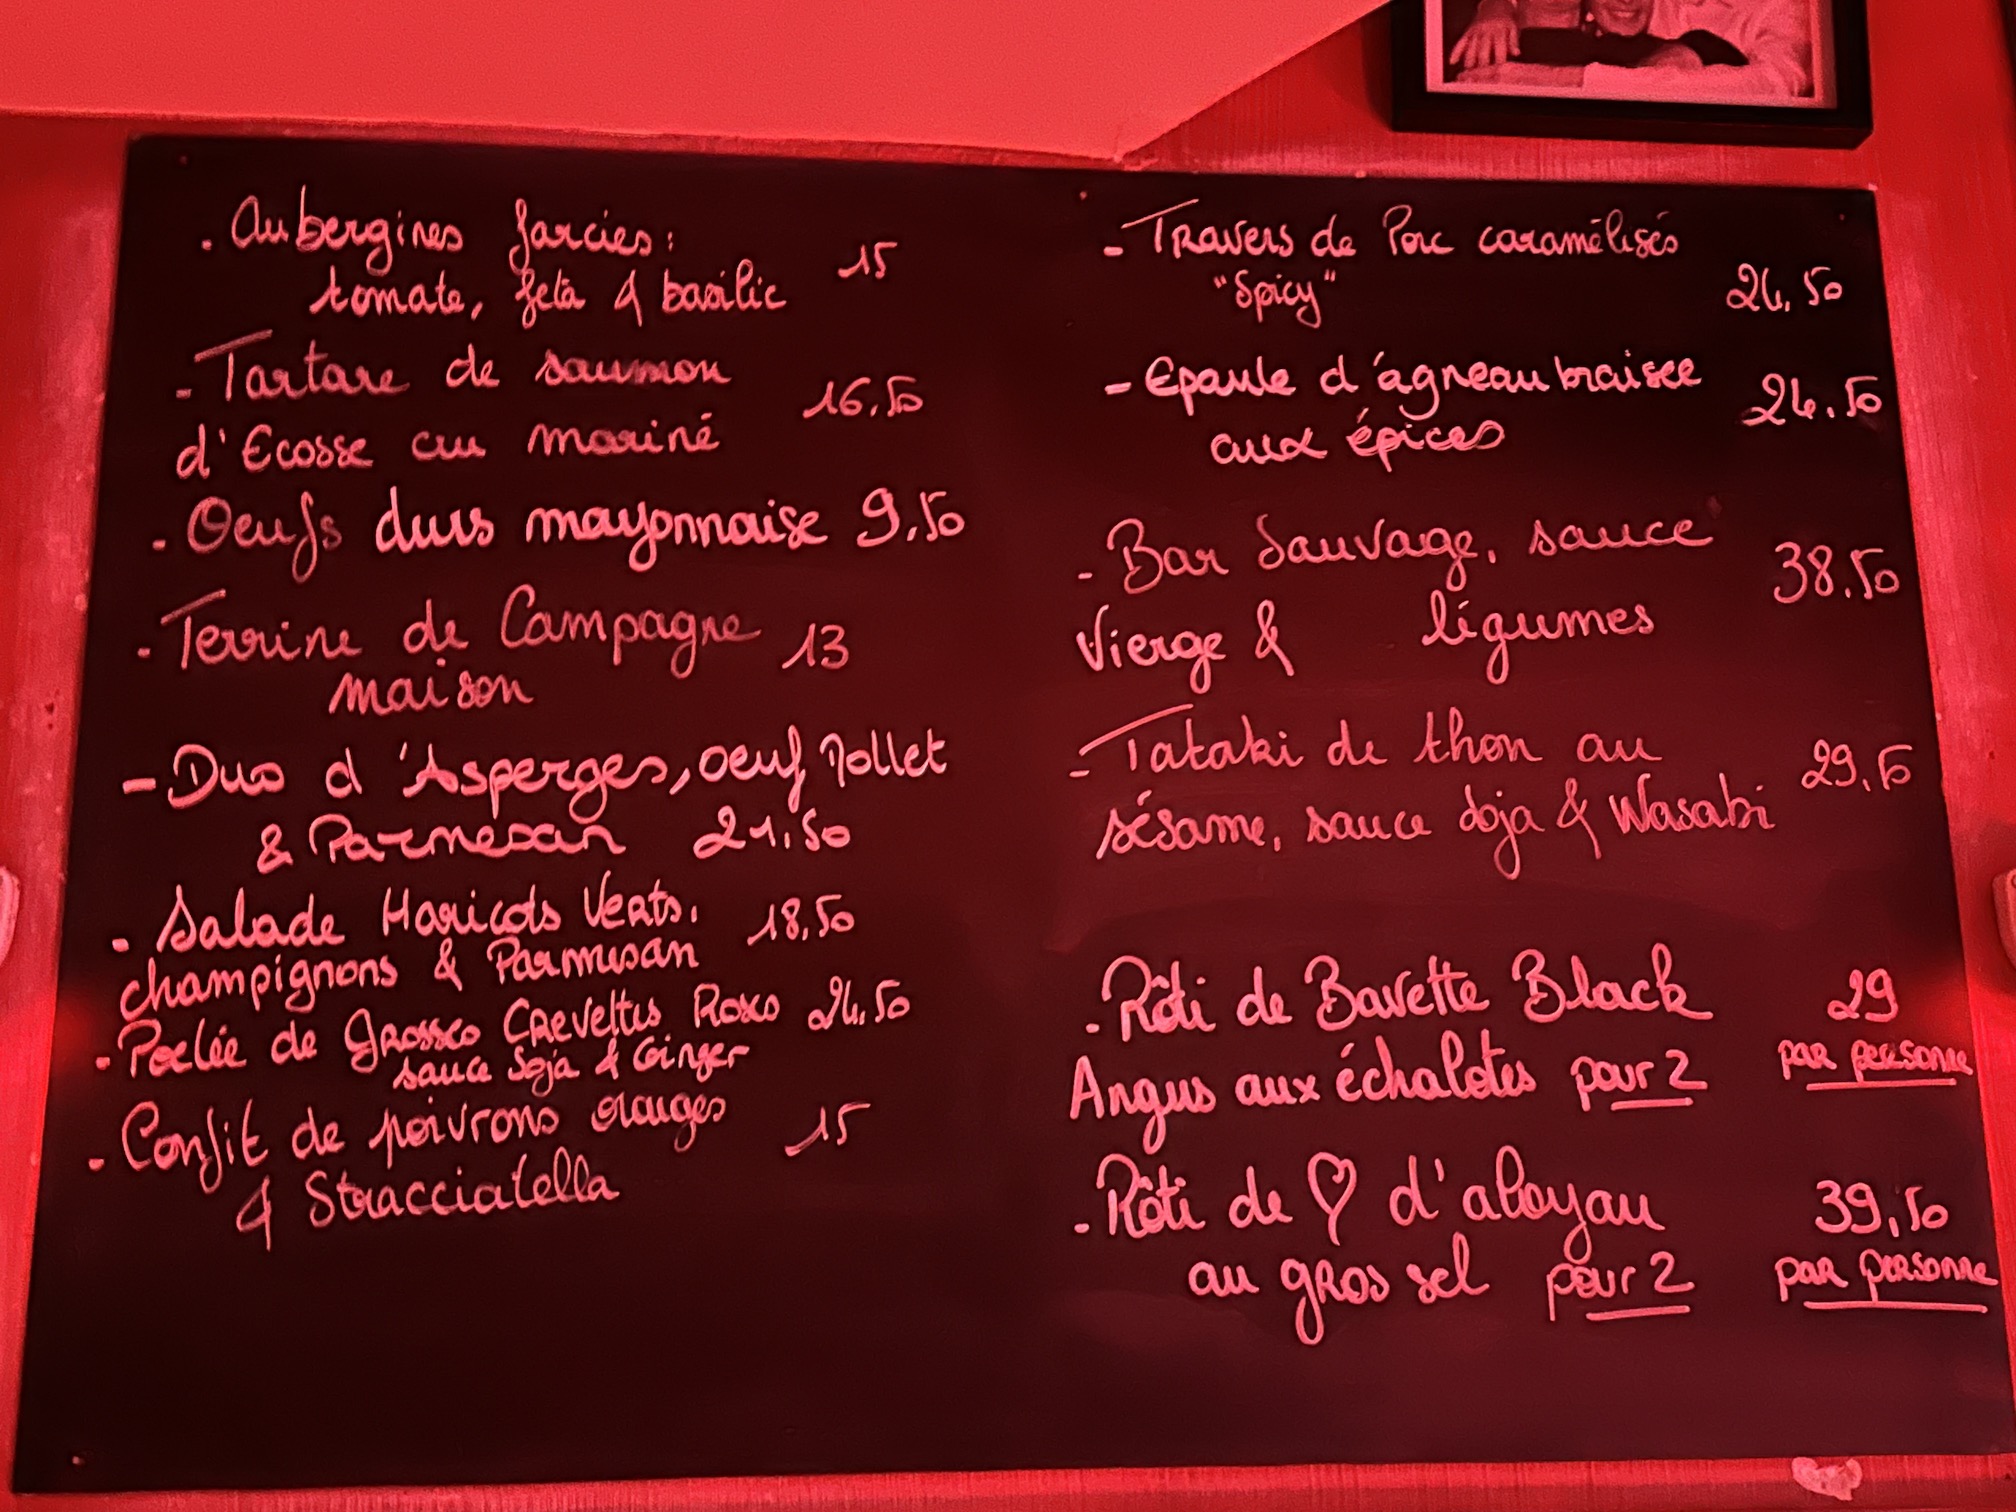 . Aubergines farcies :
tomate, feta & basilic 15
- Tartare de saumon
d'Ecosse cru mariné 16.50
. Oeufs durs mayonnaise 9.50
- Terrine de Campagne 13
maison
- Duo d'Asperges, oeuf Mollet
& Parmesan 21.50
. Salade Haricots Verts, 18,50
champignons & Parmesan
. Poelée de Grosses Crevettes Roses 24.50
sauce Soja & Ginger
. Confit de poivrons rouges 15
& Stracciatella
- Travers de Porc caramélisés
"Spicy" 24,50
- Epaule d'agneau braisee 24.50
aux épices
- Bar Sauvage, sauce 38.50
Vierge & légumes
- Tataki de thon au 29,50
sésame, sauce soja & Wasabi
- Rôti de Bavette Black 29
Angus aux échalotes pour 2 par personne
- Rôti de ♡ d'aloyau 39,50
au gros sel pour 2 par personne